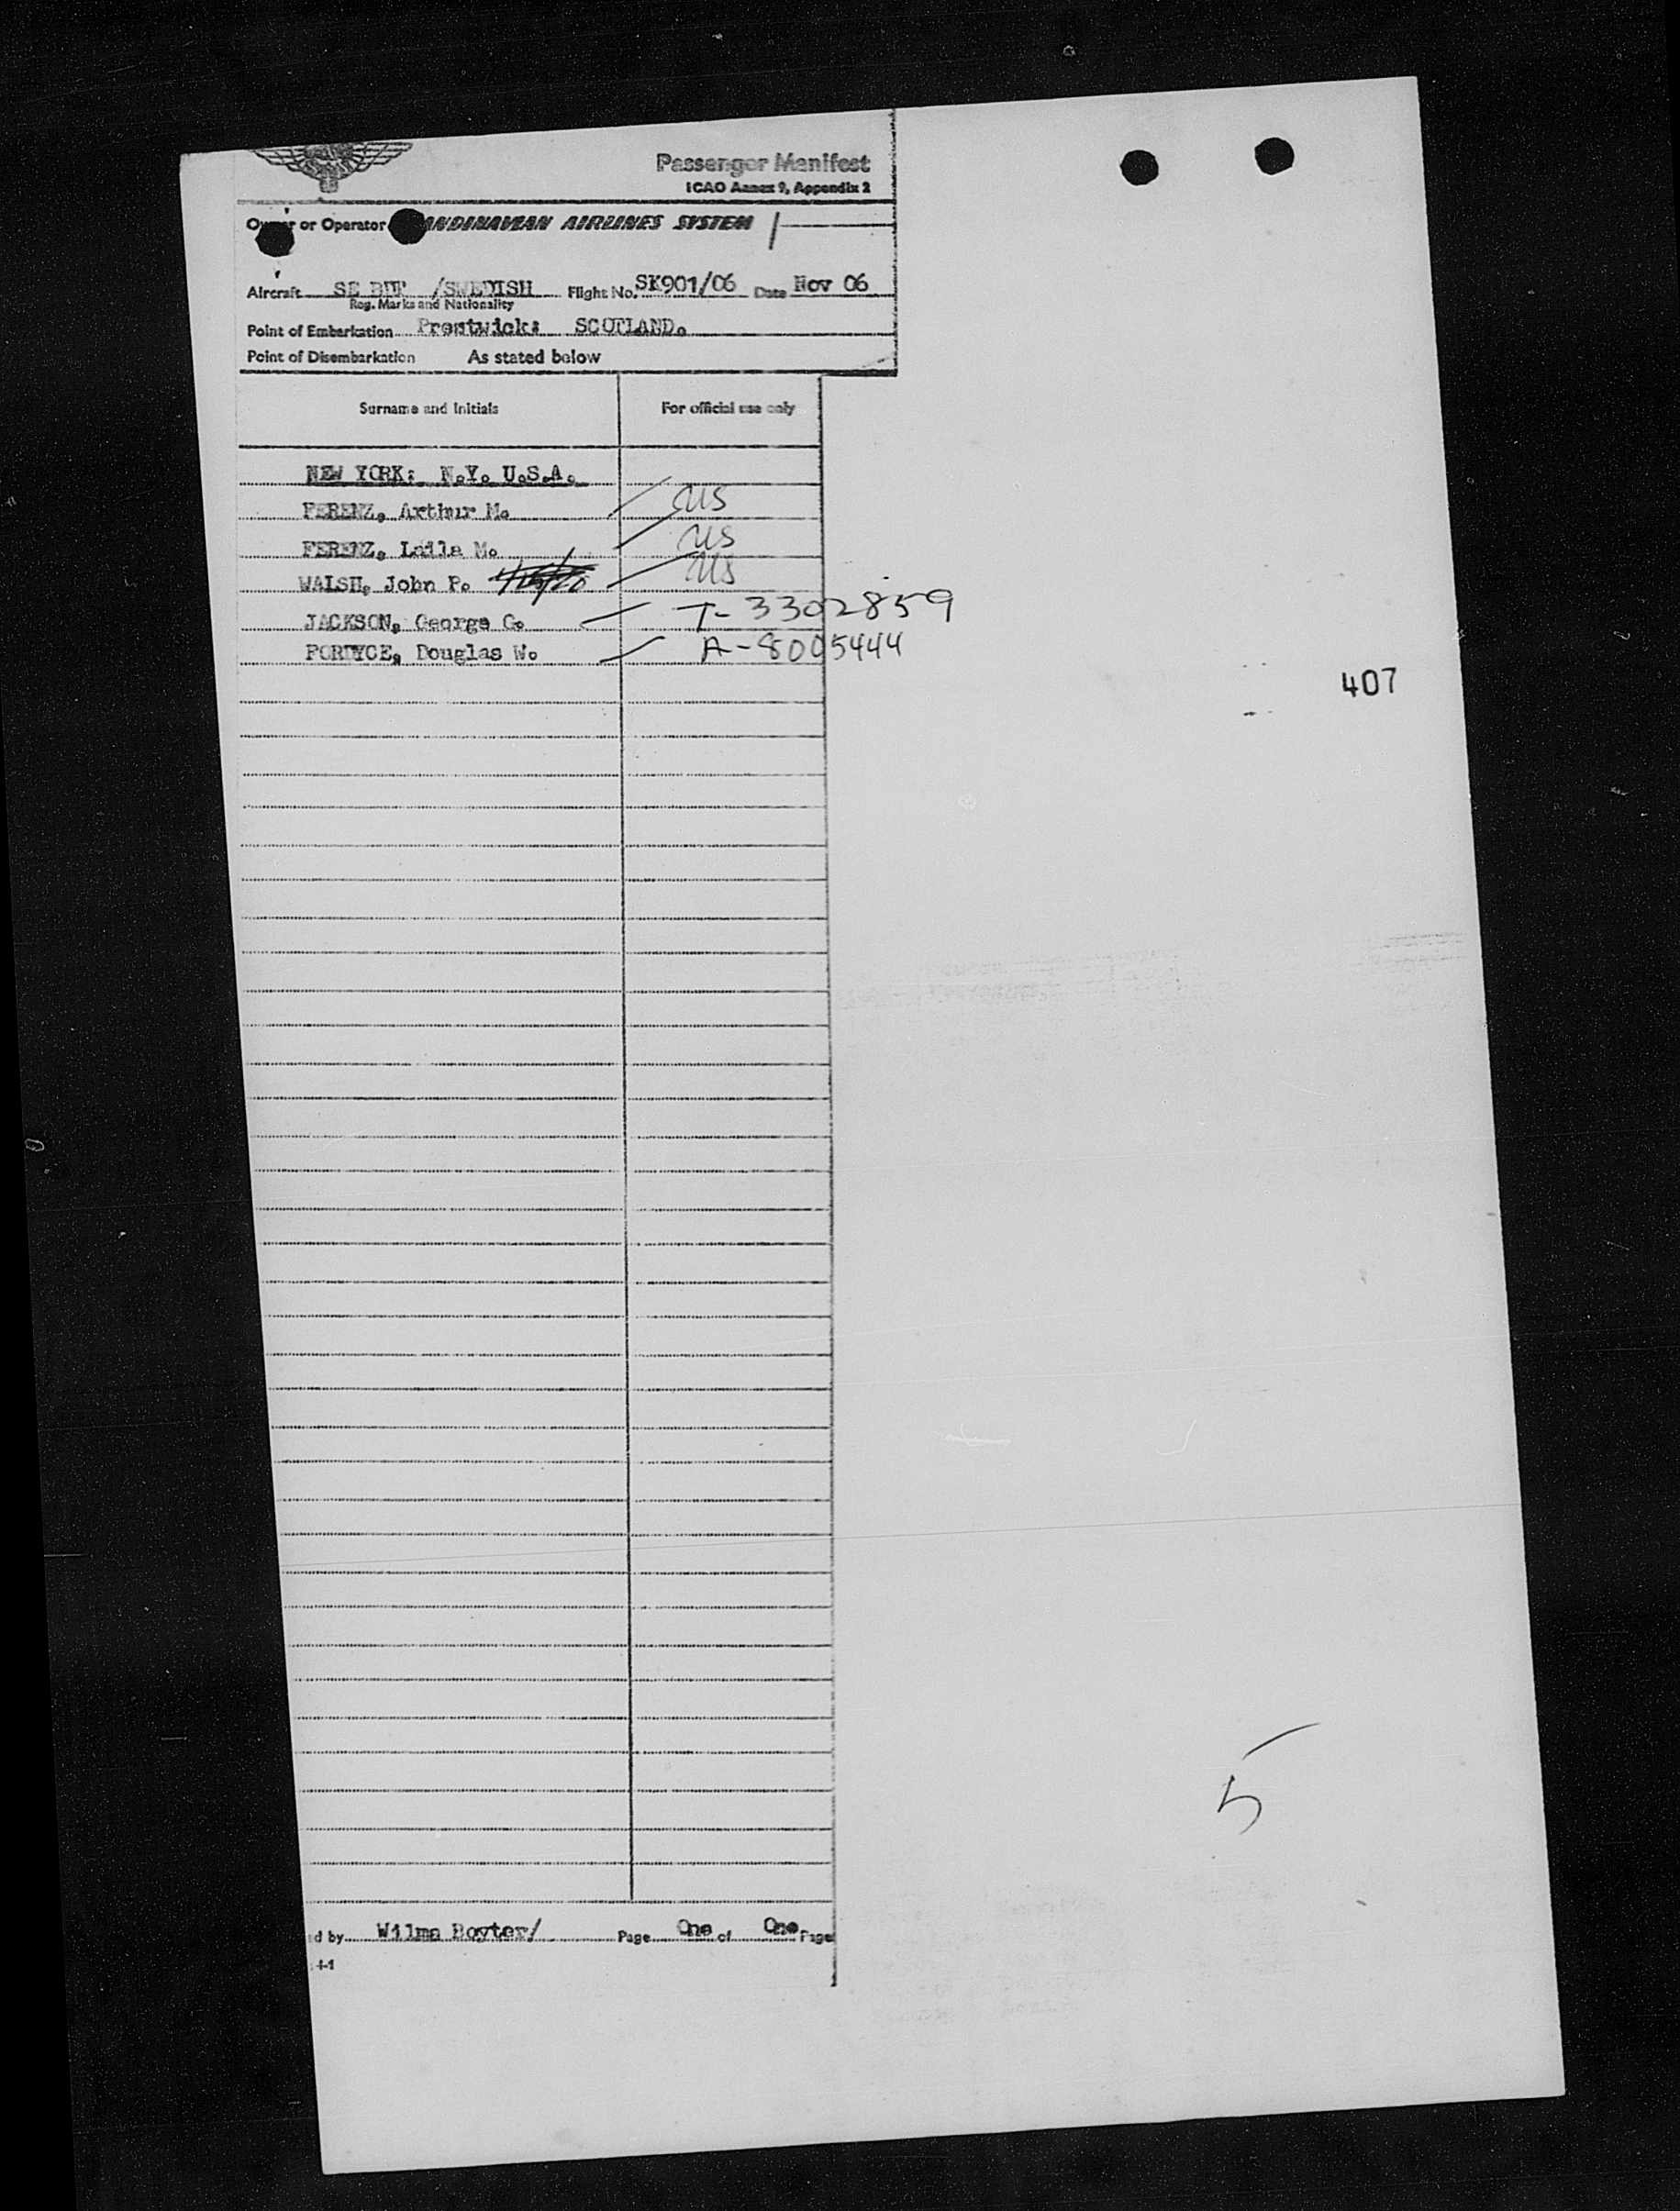 Passenger Manifest
ICAO Annex 9, Appendix 2
Owner or Operator ANDINAVIAN AIRLINES SYSTEM
Aircraft SE /SWEDISH Flight No. SK901/06 Date Nov 06
Reg. Marks and Nationality
Point of Embarkation Prestwick: SCOTLAND.
Point of Disembarkation As stated below
Surname and Initials For official use only
NEW YORK: N.Y. U.S.A.
FERENZ, Arthur M. US
FERENZ, Laila M. US
WALSH, John P. US
JACKSON, George G. T-3302859
FORDYCE, Douglas W. A-8005444
407
5
d by Wilma Boyter/ Page One of One Page
4-1